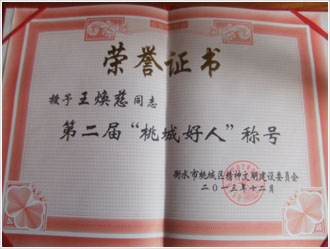 荣誉证书
授予王焕慈同志
第二届“桃城好人”称号
衡水市桃城区精神文明建设委员会
二〇一三年十二月